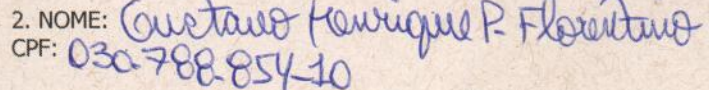 2. NOME: Gustavo Henrique P. Florentino
CPF: 030.788.854-10